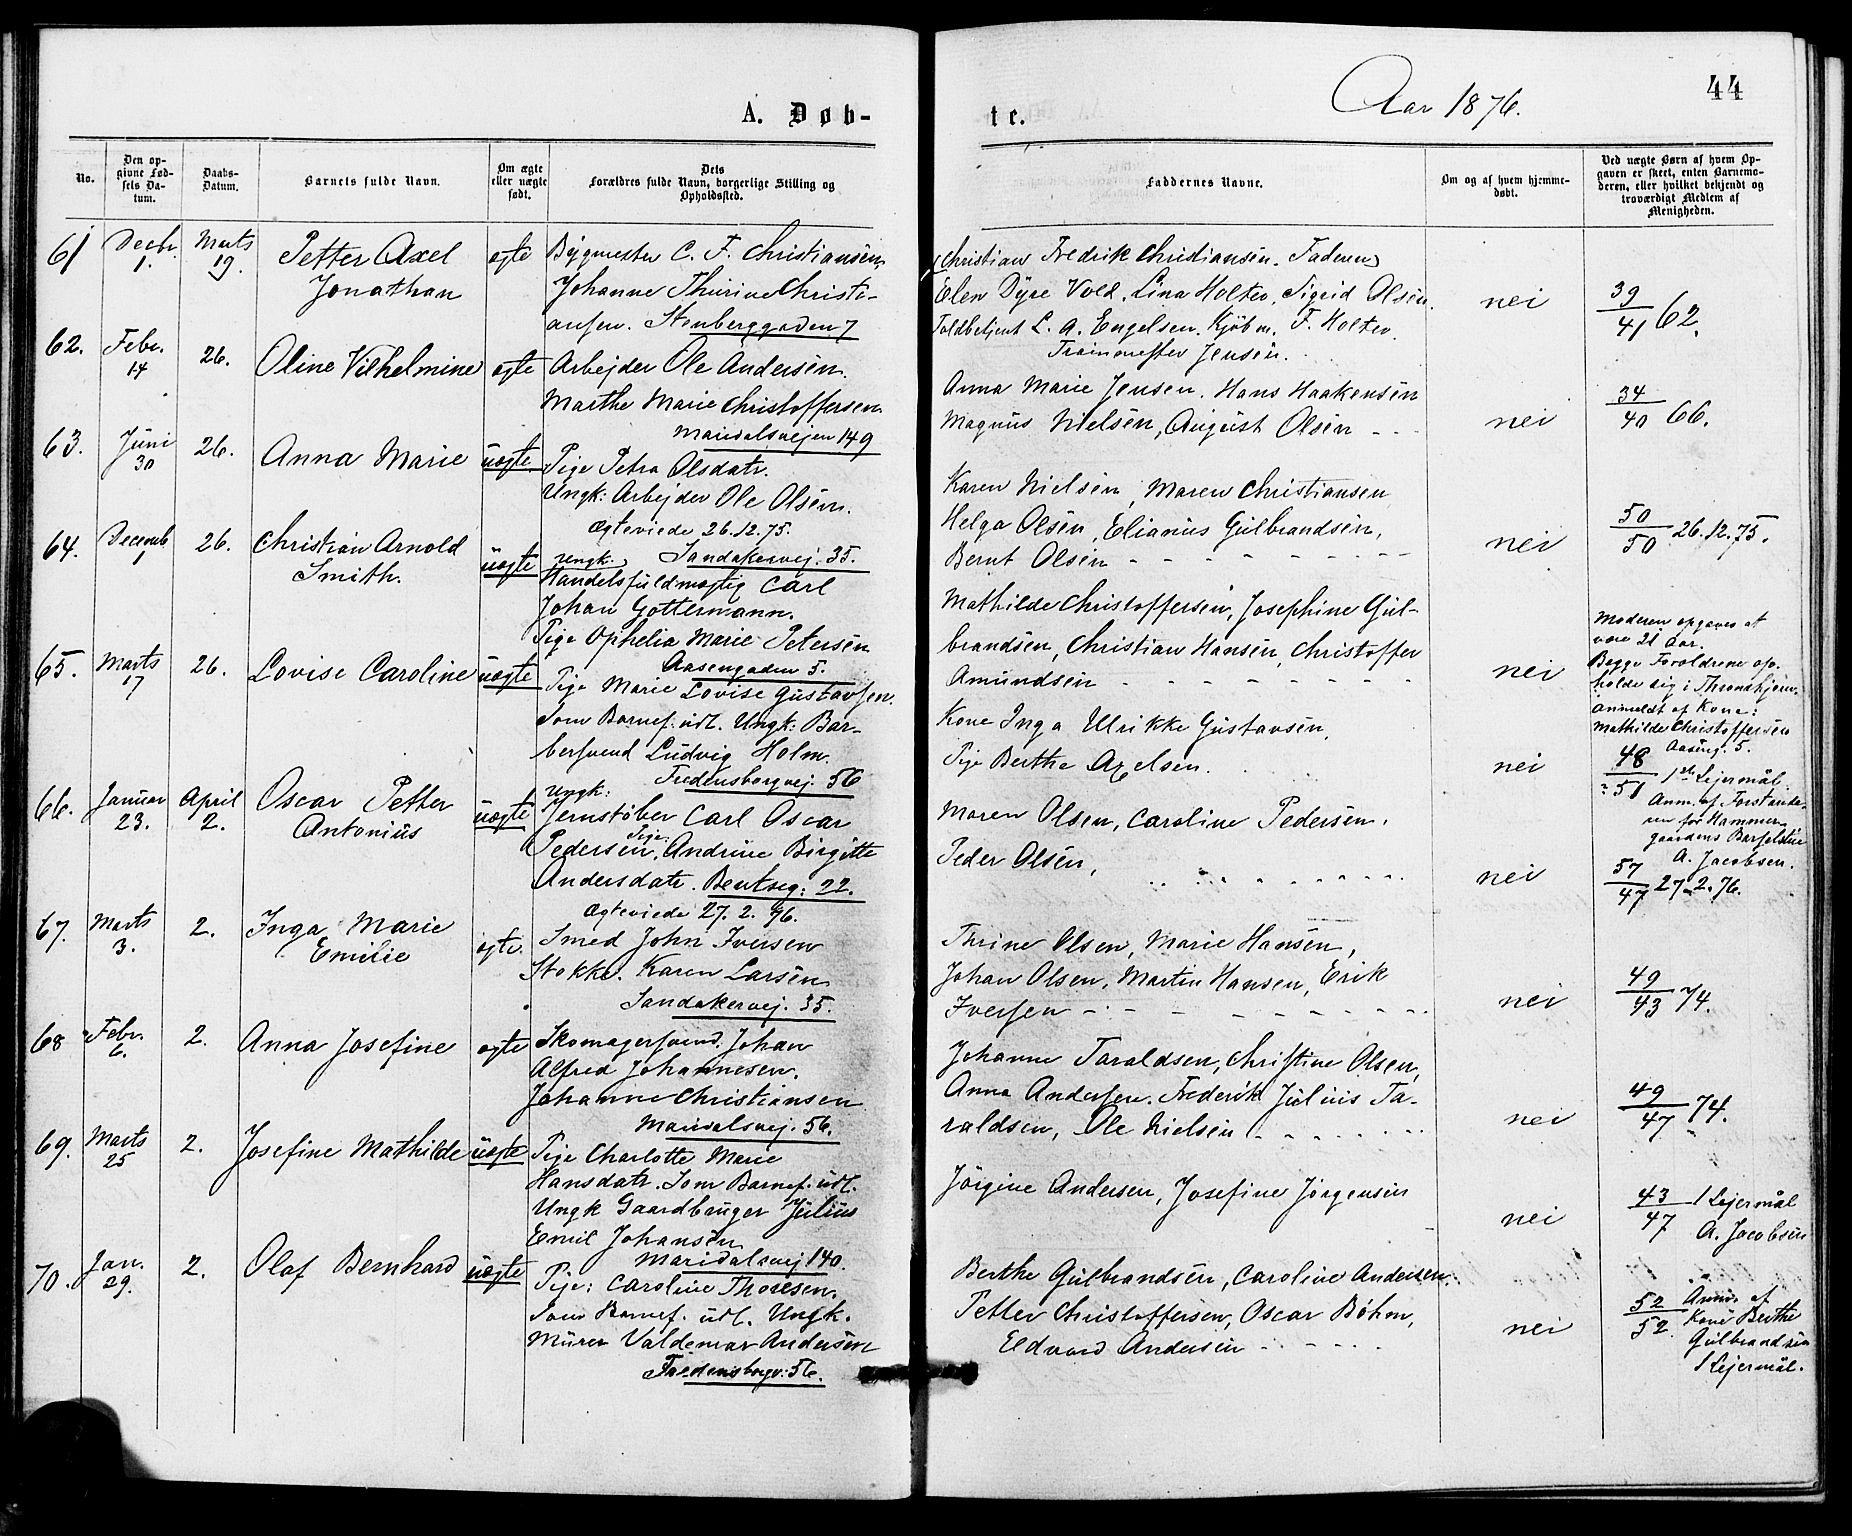 A. Døb-
No.
Den op-
givne Fød-
sels Da-
tum.
Daabs-
Datum.
Barnets fulde Navn.
Om ægte
eller uægte
født.
Dets
Forældres fulde Navn, borgerlige Stilling og
Opholdssted.
61 Decbr. 1. Marts 19. Petter Axel
Jonathan
ægte
Bygmester C. F. Christiansen,
Johanne Thurine Christi-
ansen. Stenberggaden 7
62. Febr. 14 26. Oline Vilhelmine ægte
Arbejder Ole Andersen.
Marthe Marie Christoffersen.
Maridalsvejen 149
63. Juni 30 26. Anna Marie uægte
Pige Petra Olsdatr.
Ungk: Arbejder Ole Olsen.
Ægteviede 26.12.75.
Sandakervej. 35.
64. Decemb. 1 26. Christian Arnold
Smith.
uægte
Ungk.
Handelsfuldmægtig Carl
Johan Gottermann.
Pige Ophelia Marie Petersen
Aasengaden 5.
65. Marts 17 26. Lovise Caroline uægte
Pige Marie Lovise Gustavsen.
Som Barnef. udl. Ungk: Bar-
bersvend Ludvig Holm.
Fredensborgvej. 56
66. Januar 23. April 2. Oscar Petter
Antonius
uægte
Ungk:
Jernstøber Carl Oscar
Pedersen, Pige Andrine Birgitte
Andersdatr. Bentseg: 22.
Ægteviede 27. 2. 76.
67. Marts 3. 2. Inga Marie
Emilie
ægte.
Smed John Iversen
Stokke. Karen Larsen
Sandakervej. 35.
68 Febr. 6. 2. Anna Josefine ægte
Skomagersvend. Johan
Alfred Johannesen.
Johanne Christiansen
Maridalsvej. 56.
69. Marts 25 2. Josefine Mathilde uægte
Pige Charlotte Marie
Hansdatr. Som Barnef. udl.
Ungk Gaardbruger Julius
Emil Johansen
Maridalsvej 140.
70. Jan. 29. 2. Olaf Bernhard uægte
Pige: Caroline Thoresen.
Som Barnef. udl. Ungk.
Murer Valdemar Andersen
Fredensborgv: 56.
te.
Aar 1876.
44
Faddernes Navne.
Om og af hvem hjemme-
døbt.
Ved uægte Børn af hvem Op-
gaven er skeet, enten Barnemo-
deren, eller hvilket bekjendt og
troværdigt Medlem af
Menigheden.
Christian Fredrik Christiansen. Faderen
Elen Dyre Vold, Lina Holter, Sigrid Olsen.
Toldbetjent L. A. Engelsen. Kjøbm. F. Holter.
Jensen.
nei
39
41 62.
Anna Marie Jensen. Hans Haakensen
Magnus Nielsen, August Olsen - -
nei
34
40 66.
Karen Nielsen, Maren Christiansen
Helga Olsen, Elianus Gulbrandsen,
Bernt Olsen - - -
nei
50
50 26.12.75.
Mathilde Christoffersen, Josephine Gul-
brandsen, Christian Hansen, Christoffer
Amundsen - - -
nei
Moderen opgaves at
være 21 Aar.
Begge Forældrene op-
holde sig i Thronhjem.
Anmeldt af Kone:
Mathilde Christoffersen
Aaseng. 5.
Kone Inga Ulrikke Gustavsen,
Pige Berthe Axelsen.
nei
48
51 1ste Lejermål
Anm. af Forstande-
ren for Hammer-
gaardens
A. Jacobsen.
Maren Olsen, Caroline Pedersen,
Peder Olsen,
nei
57
47 27.2.76.
Thrine Olsen, Marie Hansen,
Johan Olsen, Martin Hansen, Erik
Iversen - - -
nei
49
43 74.
Johanne Taraldsen, Christine Olsen,
Anna Andersen. Frederik Julius Ta-
raldsen, Ole Nielsen - - -
nei
49
47 74.
Jørgine Andersen, Josefine Jørgensen
nei
43
47 1 Lejermål
A. Jacobsen
Berthe Gulbrandsen, Caroline Andersen.
Petter Christoffersen, Oscar Bøhm,
Edvard Andersen - - -
nei
52
52. Anm. af
Kone Berthe
Gulbrandsen
1 Lejermål.